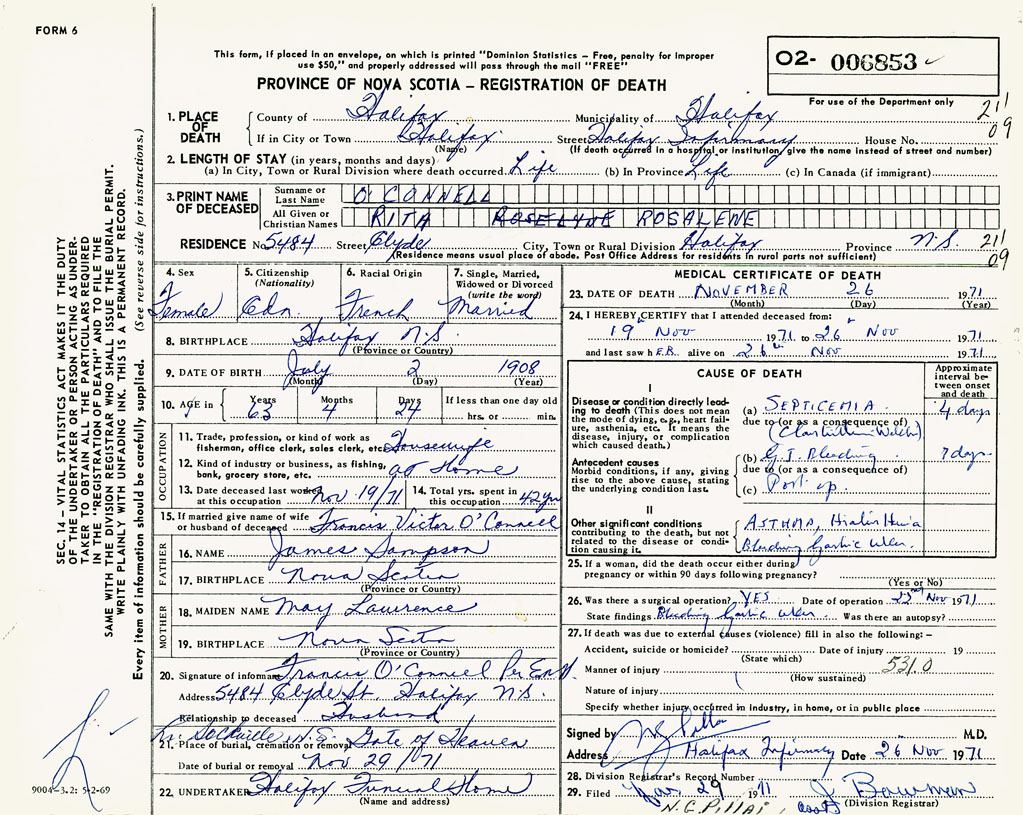 FORM 6
This form, if placed in an envelope, on which is printed "Dominion Statistics – Free, penalty for improper
use $50," and properly addressed will pass through the mail "FREE"
O2- 006853
PROVINCE OF NOVA SCOTIA – REGISTRATION OF DEATH
For use of the Department only
211
09
1. PLACE OF DEATH
County of Halifax Municipality of Halifax
If in City or Town Halifax Street Halifax Infirmary House No.
(Name) (If death occurred in a hospital or institution, give the name instead of street and number)
2. LENGTH OF STAY (in years, months and days)
(a) In City, Town or Rural Division where death occurred Life (b) In Province Life (c) In Canada (if immigrant)
3. PRINT NAME OF DECEASED
Surname or Last Name O'CONNELL
All Given or Christian Names RITA ROSELYNE ROSALENE
RESIDENCE No. 5484 Street Clyde City, Town or Rural Division Halifax Province N.S. 211
09
(Residence means usual place of abode. Post Office Address for residents in rural parts not sufficient)
4. Sex
Female
5. Citizenship
(Nationality)
Cdn.
6. Racial Origin
French
7. Single, Married,
Widowed or Divorced
(write the word)
Married
8. BIRTHPLACE Halifax N.S.
(Province or Country)
9. DATE OF BIRTH July 2 1908
(Month) (Day) (Year)
10. AGE in Years Months Days If less than one day old
63 4 24 hrs. or min.
OCCUPATION
11. Trade, profession, or kind of work as
fisherman, office clerk, sales clerk, etc. Housewife
12. Kind of industry or business, as fishing,
bank, grocery store, etc. at Home
13. Date deceased last worked
at this occupation Nov 19/71
14. Total yrs. spent in
this occupation 42 yrs
15. If married give name of wife
or husband of deceased Francis Victor O'Connell
FATHER
16. NAME James Sampson
17. BIRTHPLACE Nova Scotia
(Province or Country)
MOTHER
18. MAIDEN NAME May Lawrence
19. BIRTHPLACE Nova Scotia
(Province or Country)
20. Signature of informant Francis O'Connell Per
Address 5484 Clyde St. Halifax N.S.
Relationship to deceased Husband
Lr. Sackville N.S.
21. Place of burial, cremation or removal Gate of Heaven
Date of burial or removal Nov 29/71
22. UNDERTAKER Halifax Funeral Home
(Name and address)
MEDICAL CERTIFICATE OF DEATH
23. DATE OF DEATH NOVEMBER 26 1971
(Month) (Day) (Year)
24. I HEREBY CERTIFY that I attended deceased from:
19 Nov 1971 to 26 Nov 1971
and last saw hER alive on 26 Nov 1971
CAUSE OF DEATH
Approximate interval between onset and death
I
Disease or condition directly leading to death (This does not mean the mode of dying, e.g., heart failure, asthenia, etc. It means the disease, injury, or complication which caused death.)
(a) SEPTICEMIA 4 days
due to (or as a consequence of)
Antecedent causes
Morbid conditions, if any, giving rise to the above cause, stating the underlying condition last.
(b) G.I. Bleeding 7 days
due to (or as a consequence of)
(c) Post-op.
II
Other significant conditions
contributing to the death, but not related to the disease or condition causing it.
ASTHMA, Hiatus Hernia
Bleeding Gastric Ulcer.
25. If a woman, did the death occur either during
pregnancy or within 90 days following pregnancy?
(Yes or No)
26. Was there a surgical operation? YES Date of operation 23rd Nov 1971
State findings Bleeding Gastric Ulcer Was there an autopsy?
27. If death was due to external causes (violence) fill in also the following: –
Accident, suicide or homicide? Date of injury 19
(State which)
Manner of injury 531.0
(How sustained)
Nature of injury
Specify whether injury occurred in industry, in home, or in public place
Signed by N G Pillai M.D.
Address Halifax Infirmary Date 26 Nov 1971
28. Division Registrar's Record Number
29. Filed Nov. 29 1971 J. Bowman
(Division Registrar)
N.G. PILLAI
SEC. 14 – VITAL STATISTICS ACT MAKES IT THE DUTY
OF THE UNDERTAKER OR PERSON ACTING AS UNDER-
TAKER TO OBTAIN ALL THE PARTICULARS REQUIRED
IN THE "REGISTRATION OF DEATH" AND TO FILE THE
SAME WITH THE DIVISION REGISTRAR WHO SHALL ISSUE THE BURIAL PERMIT.
WRITE PLAINLY WITH UNFADING INK. THIS IS A PERMANENT RECORD.
Every item of information should be carefully supplied. (See reverse side for instructions.)
9004-3.2: 5-2-69